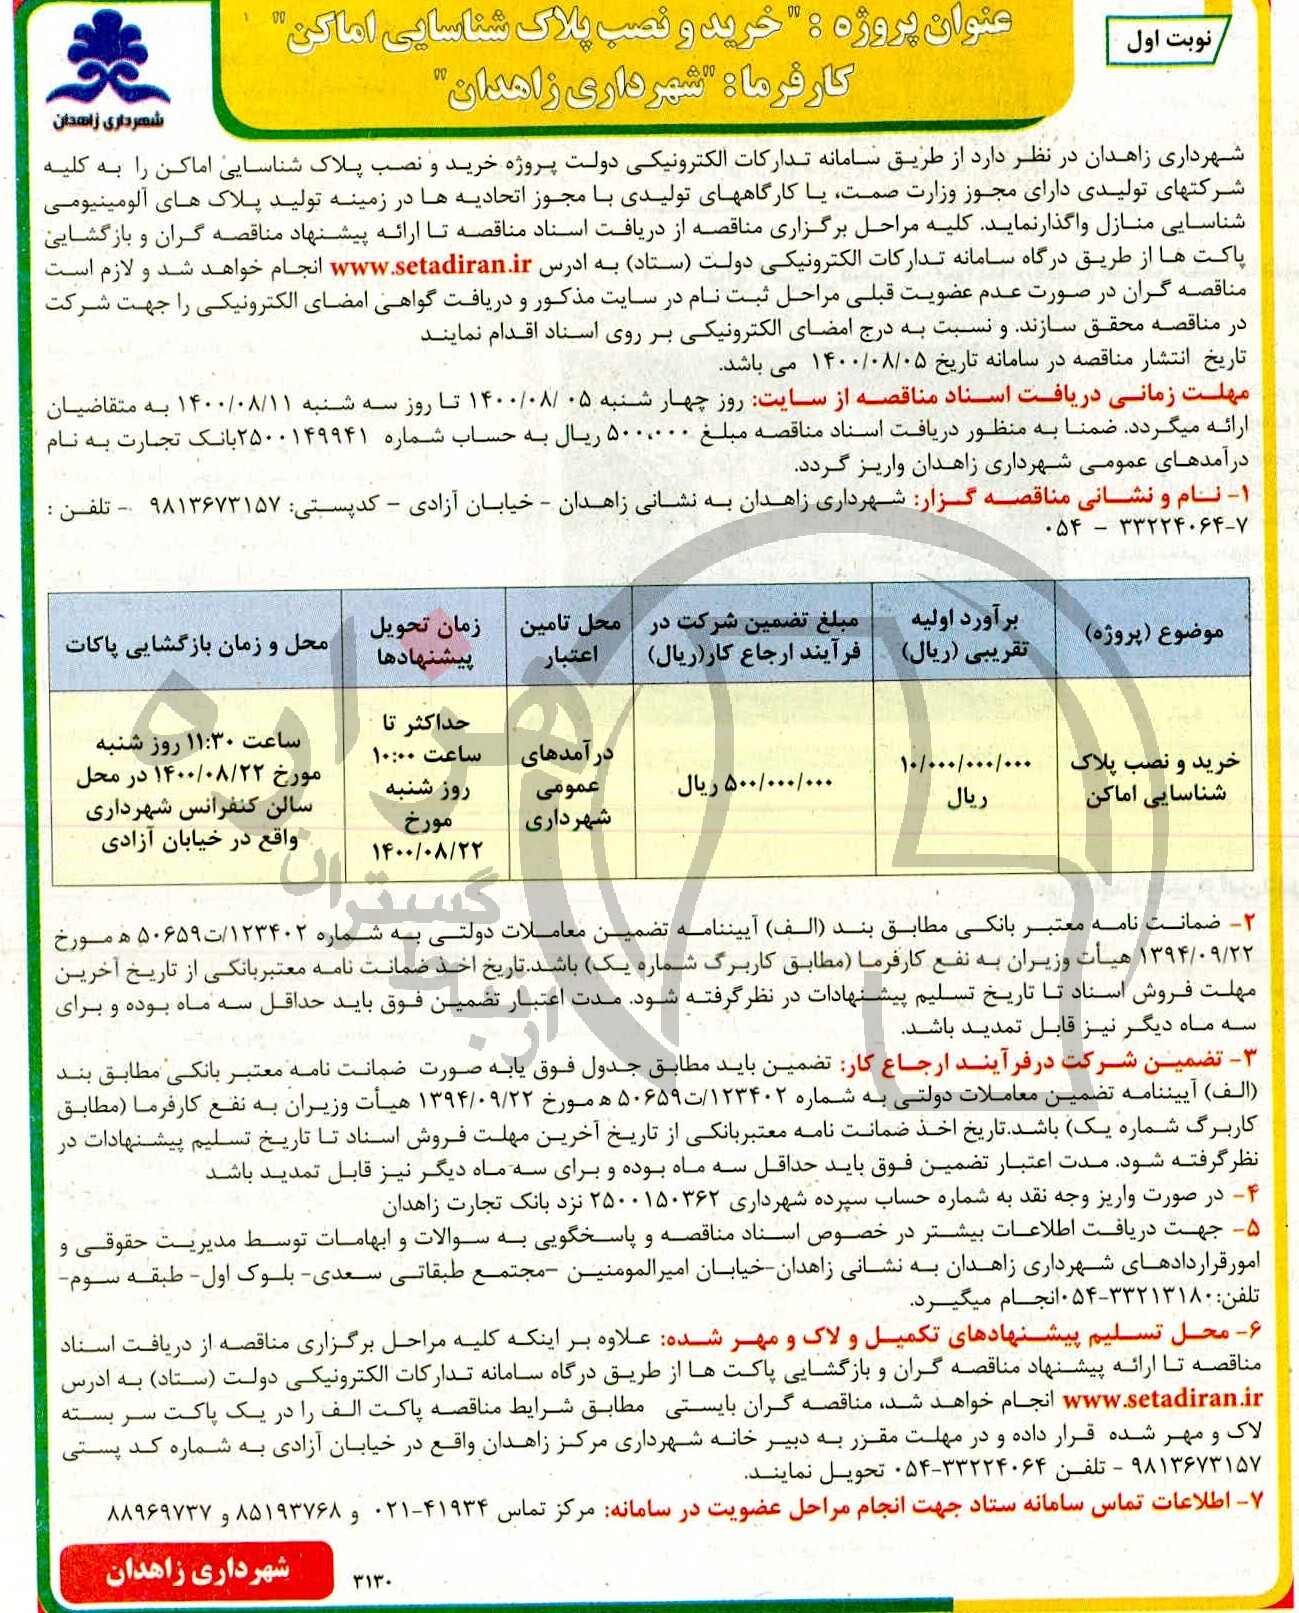 نوبت اول
عنوان پروژه : "خرید و نصب پلاک شناسایی اماکن"
کارفرما: "شهرداری زاهدان"
شهرداری زاهدان
شهرداری زاهدان در نظر دارد از طریق سامانه تدارکات الکترونیکی دولت پروژه خرید و نصب پلاک شناسایی اماکن را به کلیه
شرکتهای تولیدی دارای مجوز وزارت صمت، یا کارگاههای تولیدی با مجوز اتحادیه ها در زمینه تولید پلاک های آلومینیومی
شناسایی منازل واگذارنماید. کلیه مراحل برگزاری مناقصه از دریافت اسناد مناقصه تا ارائه پیشنهاد مناقصه گران و بازگشایی
پاکت ها از طریق درگاه سامانه تدارکات الکترونیکی دولت (ستاد) به ادرس www.setadiran.ir انجام خواهد شد و لازم است
مناقصه گران در صورت عدم عضویت قبلی مراحل ثبت نام در سایت مذکور و دریافت گواهی امضای الکترونیکی را جهت شرکت
در مناقصه محقق سازند. و نسبت به درج امضای الکترونیکی بر روی اسناد اقدام نمایند
تاریخ انتشار مناقصه در سامانه تاریخ ۱۴۰۰/۰۸/۰۵ می باشد.
مهلت زمانی دریافت اسناد مناقصه از سایت: روز چهار شنبه ۰۵ /۱۴۰۰/۰۸ تا روز سه شنبه ۱۴۰۰/۰۸/۱۱ به متقاضیان
ارائه میگردد. ضمنا به منظور دریافت اسناد مناقصه مبلغ ۵۰۰،۰۰۰ ریال به حساب شماره ۲۵۰۰۱۴۹۹۴۱بانک تجارت به نام
درآمدهای عمومی شهرداری زاهدان واریز گردد.
۱- نام و نشانی مناقصه گزار: شهرداری زاهدان به نشانی زاهدان - خیابان آزادی - کدپستی: ۹۸۱۳۶۷۳۱۵۷ - تلفن :
۷-۳۳۲۲۴۰۶۴ – ۰۵۴
موضوع (پروژه)
برآورد اولیه تقریبی (ریال)
مبلغ تضمین شرکت در فرآیند ارجاع کار(ریال)
محل تامین اعتبار
زمان تحویل پیشنهادها
محل و زمان بازگشایی پاکات
خرید و نصب پلاک شناسایی اماکن
۱۰/۰۰۰/۰۰۰/۰۰۰ ریال
۵۰۰/۰۰۰/۰۰۰ ریال
درآمدهای عمومی شهرداری
حداکثر تا ساعت ۱۰:۰۰ روز شنبه مورخ ۱۴۰۰/۰۸/۲۲
ساعت ۱۱:۳۰ روز شنبه مورخ ۱۴۰۰/۰۸/۲۲ در محل سالن کنفرانس شهرداری واقع در خیابان آزادی
۲- ضمانت نامه معتبر بانکی مطابق بند (الف) آییننامه تضمین معاملات دولتی به شماره ۱۲۳۴۰۲/ت۵۰۶۵۹ ه مورخ
۱۳۹۴/۰۹/۲۲ هیأت وزیران به نفع کارفرما (مطابق کاربرگ شماره یک) باشد.تاریخ اخذ ضمانت نامه معتبربانکی از تاریخ آخرین
مهلت فروش اسناد تا تاریخ تسلیم پیشنهادات در نظرگرفته شود. مدت اعتبار تضمین فوق باید حداقل سه ماه بوده و برای
سه ماه دیگر نیز قابل تمدید باشد.
۳- تضمین شرکت درفرآیند ارجاع کار: تضمین باید مطابق جدول فوق یابه صورت ضمانت نامه معتبر بانکی مطابق بند
(الف) آییننامه تضمین معاملات دولتی به شماره ۱۲۳۴۰۲/ت۵۰۶۵۹ ه مورخ ۱۳۹۴/۰۹/۲۲ هیأت وزیران به نفع کارفرما (مطابق
کاربرگ شماره یک) باشد.تاریخ اخذ ضمانت نامه معتبربانکی از تاریخ آخرین مهلت فروش اسناد تا تاریخ تسلیم پیشنهادات در
نظرگرفته شود. مدت اعتبار تضمین فوق باید حداقل سه ماه بوده و برای سه ماه دیگر نیز قابل تمدید باشد
۴- در صورت واریز وجه نقد به شماره حساب سپرده شهرداری ۲۵۰۰۱۵۰۳۶۲ نزد بانک تجارت زاهدان
۵- جهت دریافت اطلاعات بیشتر در خصوص اسناد مناقصه و پاسخگویی به سوالات و ابهامات توسط مدیریت حقوقی و
امورقراردادهای شهرداری زاهدان به نشانی زاهدان-خیابان امیرالمومنین -مجتمع طبقاتی سعدی- بلوک اول- طبقه سوم-
تلفن:۳۳۲۱۳۱۸۰-۰۵۴انجام میگیرد.
۶- محل تسلیم پیشنهادهای تکمیل و لاک و مهر شده: علاوه بر اینکه کلیه مراحل برگزاری مناقصه از دریافت اسناد
مناقصه تا ارائه پیشنهاد مناقصه گران و بازگشایی پاکت ها از طریق درگاه سامانه تدارکات الکترونیکی دولت (ستاد) به ادرس
www.setadiran.ir انجام خواهد شد، مناقصه گران بایستی مطابق شرایط مناقصه پاکت الف را در یک پاکت سر بسته
لاک و مهر شده قرار داده و در مهلت مقرر به دبیر خانه شهرداری مرکز زاهدان واقع در خیابان آزادی به شماره کد پستی
۹۸۱۳۶۷۳۱۵۷ - تلفن ۳۳۲۲۴۰۶۴-۰۵۴ تحویل نمایند.
۷- اطلاعات تماس سامانه ستاد جهت انجام مراحل عضویت در سامانه: مرکز تماس ۴۱۹۳۴-۰۲۱ و ۸۵۱۹۳۷۶۸ و ۸۸۹۶۹۷۳۷
۳۱۳۰
شهرداری زاهدان